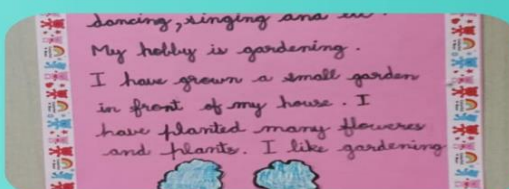 dancing, singing and etc.
My hobby is gardening.
I have grown a small garden
in front of my house. I
have planted many floweres
and plants. I like gardening